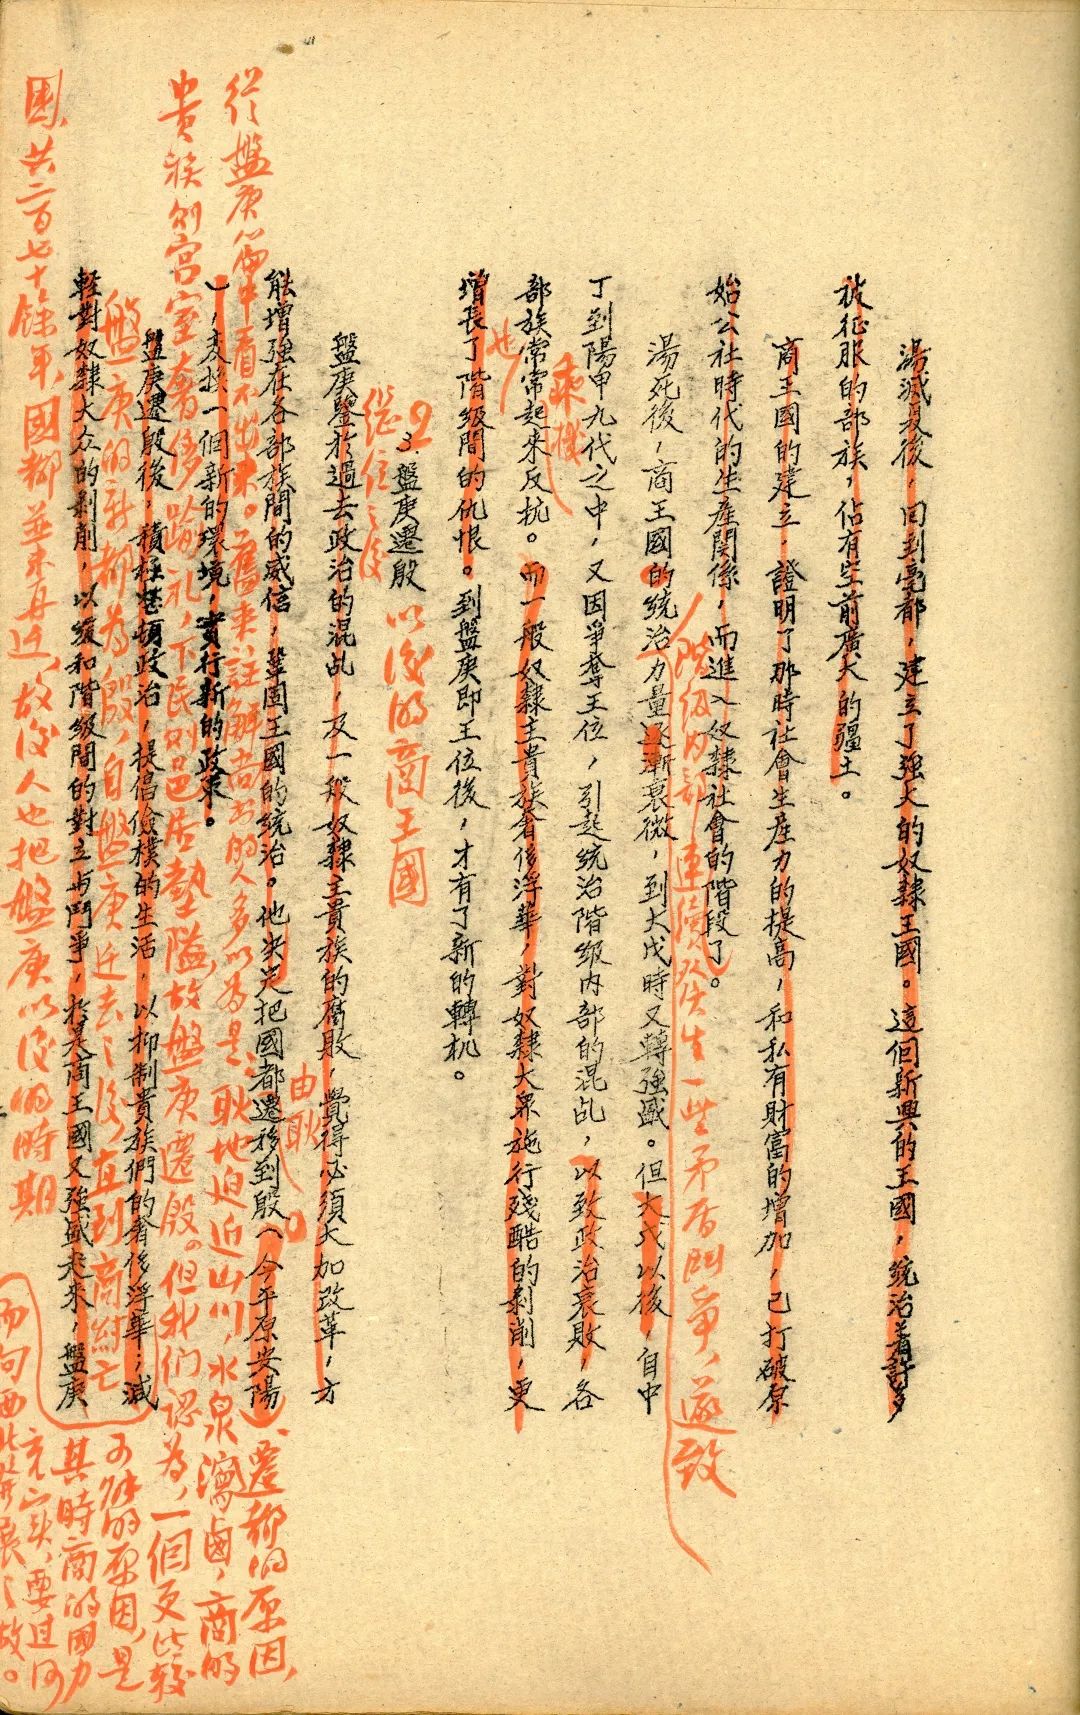 湯滅夏後，回到亳都，建立了強大的奴隸王國。這個新興的王國，統治着許多
被征服的部族，佔有空前廣大的疆土。
商王國的建立，證明了那時社會生産力的提高，和私有財富的增加，已打破原
始公社時代的生産関係，而進入奴隸社會的階段了。
階級內部連續發生一些矛盾鬥爭，遂致
湯死後，商王國的統治力量逐漸衰微，到大戊時又轉強盛。但大戊以後，自中
丁到陽甲九代之中，又因爭奪王位，引起統治階級內部的混乱，以致政治衰敗，各
乘機
部族常常起來反抗。而一般奴隸主貴族奢侈浮華，對奴隸大眾施行殘酷的剝削，更
也
增長了階級間的仇恨。到盤庚即王位後，才有了新的轉机。
2
3.盤庚遷殷
以後的商王國
繼位之後
盤庚鑒於過去政治的混乱，及一般奴隸主貴族的腐敗，覺得必須大加改革，方
由耿
能增強在各部族間的威信，鞏固王國的統治。他決定把國都遷移到殷（今平原安陽
），変換一個新的環境，實行新的政策。
遷都的原因，
從盤庚篇中看不出來。舊來註解尚書的人多以為是耿地迫近山川，水泉瀉鹵，商的
貴族則宮室奢侈踰礼，下民則邑居墊隘，故盤庚遷殷。但我们認為，一個更比較
可能的原因，是
其時商的國力
充實，要過河
而向西北發展之故。
盤庚遷殷後，積極整頓政治，提倡儉樸的生活，以抑制貴族們的奢侈浮華；減
盤庚的新都為殷，自盤庚迁去之後，直到商紂亡
輕對奴隸大众的剝削，以緩和階級間的對立与鬥爭，於是商王國又強盛起來，盤庚
國，共二百七十餘年，國都並未再迁，故後人也把盤庚以後的時期